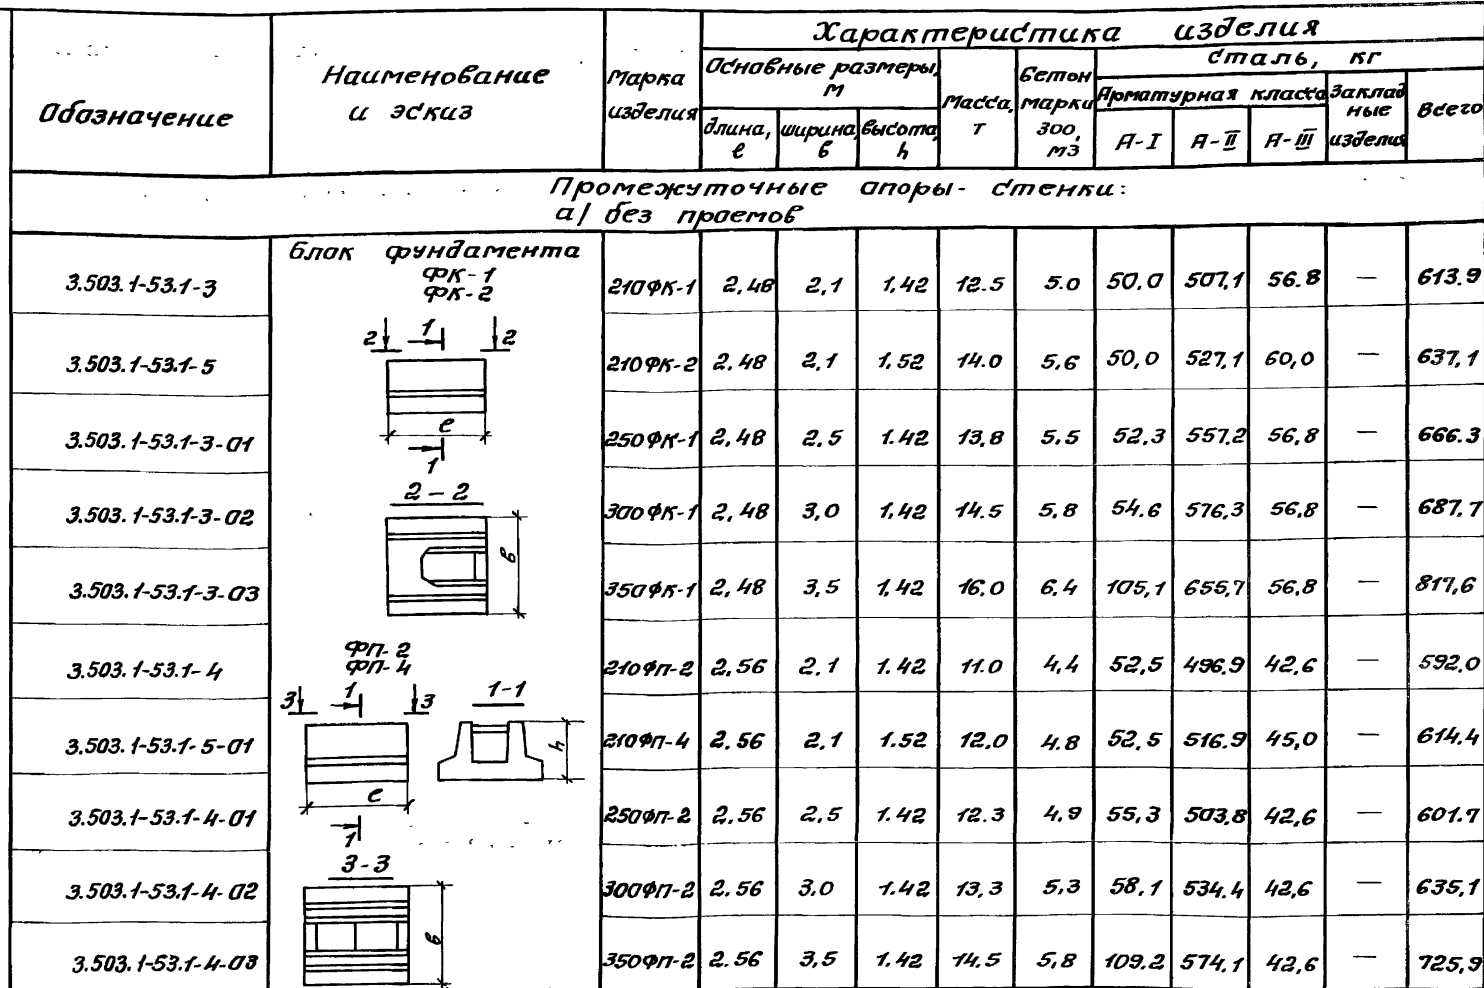 Обозначение
Наименование
и эскиз
Марка
изделия
Характеристика изделия
Основные размеры,
м
длина,
ℓ
ширина,
в
высота,
h
Масса,
т
Бетон
марки
300,
м3
Сталь, кг
Арматурная класса
А-I
А-II
А-III
Заклад
ные
изделия
Всего
Промежуточные опоры-стенки:
а/ без проемов
Блок фундамента
ФК-1
ФК-2
3.503.1-53.1-3 210ФК-1 2,48 2,1 1,42 12.5 5.0 50,0 507,1 56.8 — 613.9
2 1 2
3.503.1-53.1-5 210ФК-2 2.48 2,1 1,52 14.0 5,6 50,0 527,1 60,0 — 637,1
ℓ
3.503.1-53.1-3-01 250ФК-1 2,48 2.5 1.42 13,8 5,5 52,3 557.2 56,8 — 666.3
1
2-2
3.503.1-53.1-3-02 300ФК-1 2,48 3,0 1.42 14.5 5,8 54.6 576,3 56,8 — 687.7
в
3.503.1-53.1-3-03 350ФК-1 2,48 3,5 1,42 16.0 6.4 105,1 655,7 56,8 — 817,6
ФП-2
ФП-4
3.503.1-53.1-4 210ФП-2 2,56 2,1 1.42 11.0 4,4 52,5 496.9 42,6 — 592,0
3 1 3 1-1
3.503.1-53.1-5-01 210ФП-4 2.56 2,1 1.52 12,0 4.8 52,5 516.9 45,0 — 614.4
h
ℓ
3.503.1-53.1-4-01 250ФП-2 2.56 2,5 1.42 12.3 4,9 55,3 503,8 42,6 — 601.7
1
3-3
3.503.1-53.1-4-02 300ФП-2 2.56 3.0 1.42 13,3 5,3 58,1 534.4 42,6 — 635,1
в
3.503.1-53.1-4-03 350ФП-2 2.56 3,5 1.42 14,5 5,8 109.2 574,1 42,6 — 725,9